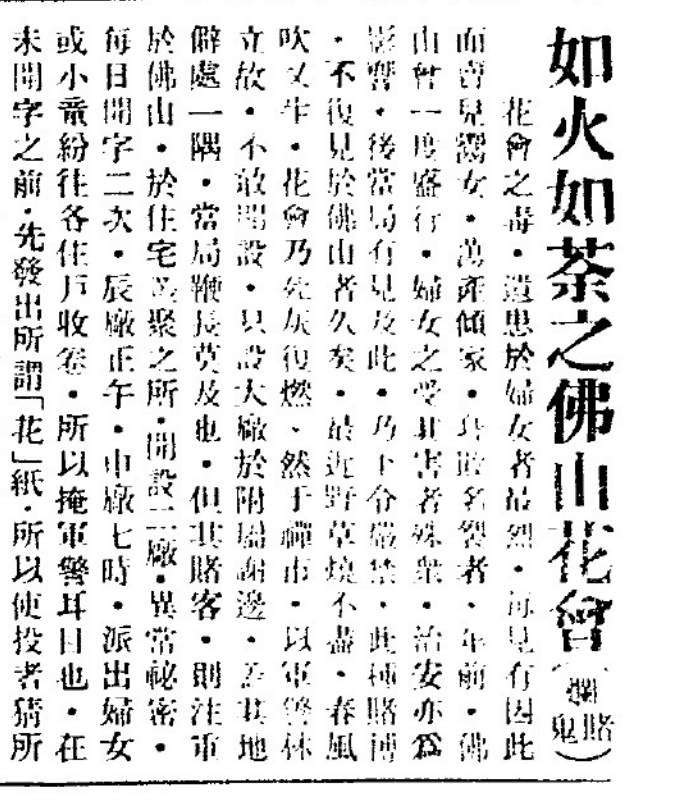 如火如荼之佛山花會（爛賭鬼）
花會之毒・遺患於婦女者最烈・每見有因此
而賣兒鬻女・蕩產傾家・身敗名裂者・年前・佛
山會一度盛行・婦女之受其害者殊衆・治安亦爲
影響・後當局有見及此・乃下令嚴禁・此種賭博
・不復見於佛山者久矣・最近野草燒不盡・春風
吹又生・花會乃死灰復燃、然于禪市・以軍警林
立故・不敢開設・只設大廠於附屬謝邊・蓋其地
僻處一隅・當局鞭長莫及也・但其賭客・則注重
於佛山・於住宅 聚之所・開設二廠・異常祕密・
每日開字二次・辰廠正午・中廠七時・派出婦女
或小童紛往各住戶收卷・所以掩軍警耳目也・在
未開字之前・先發出所謂「花」紙・所以使投者猜所